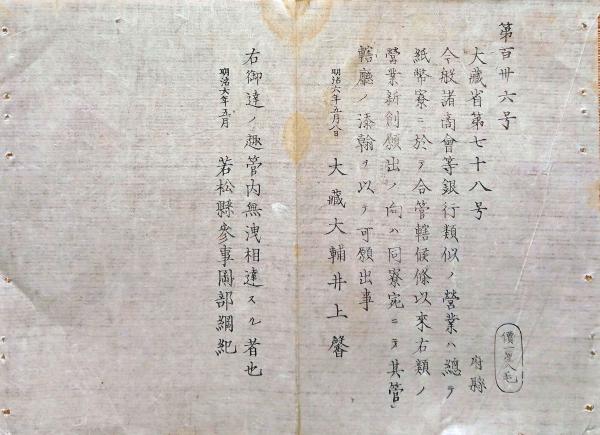 第百卅六号
大藏省第七十八号
府縣
今般諸商會等銀行類似ノ營業ハ總テ
紙幣寮ニ於テ合管轄候條以來右類ノ
營業新創願出ノ向ハ同寮宛ニテ其管
轄廳ノ添翰ヲ以テ可願出事
明治六年五月八日 大藏大輔井上馨
右御達ノ趣管内無洩相達スル者也
明治六年五月 若松縣參事岡部綱紀